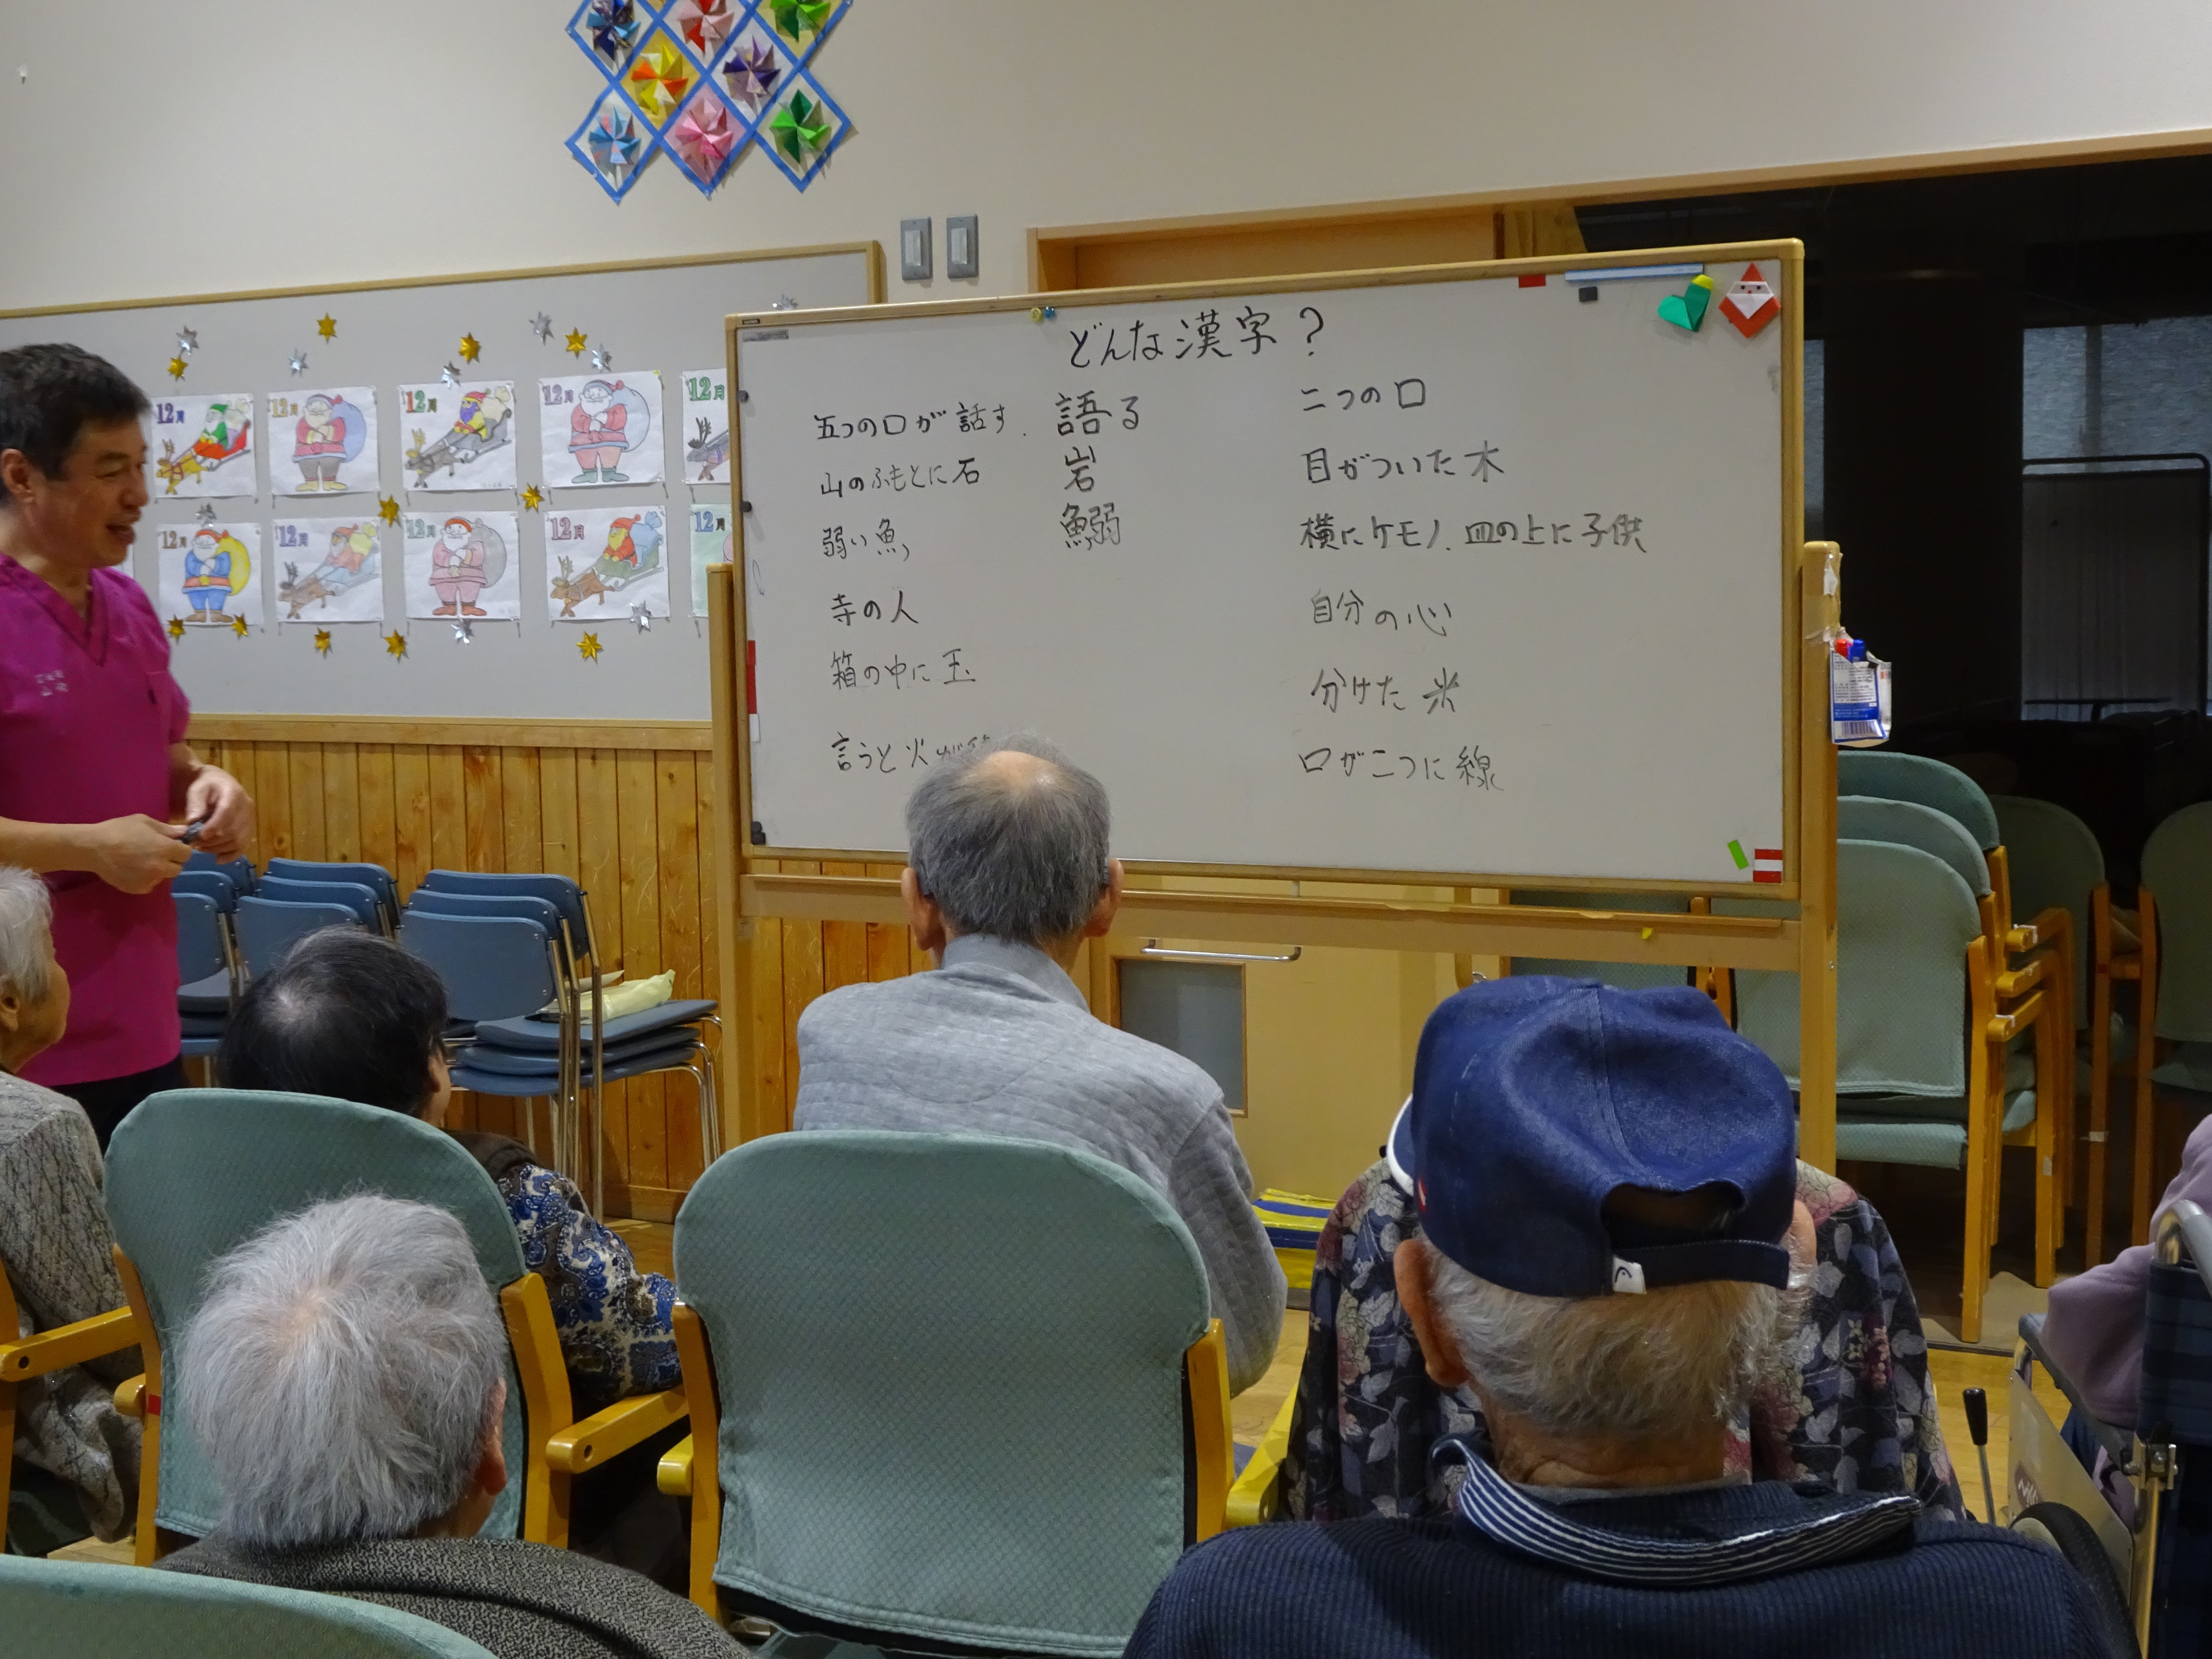 どんな漢字?
五つの口が話す. 語る
山のふもとに石 岩
弱い魚 鰯
寺の人
箱の中に玉
言うと火が
二つの口
目がついた木
横にケモノ、皿の上に子供
自分の心
分けた米
口が二つに線
12月
12月
12月
12月
12月
12月
12月
12月
12月
12月